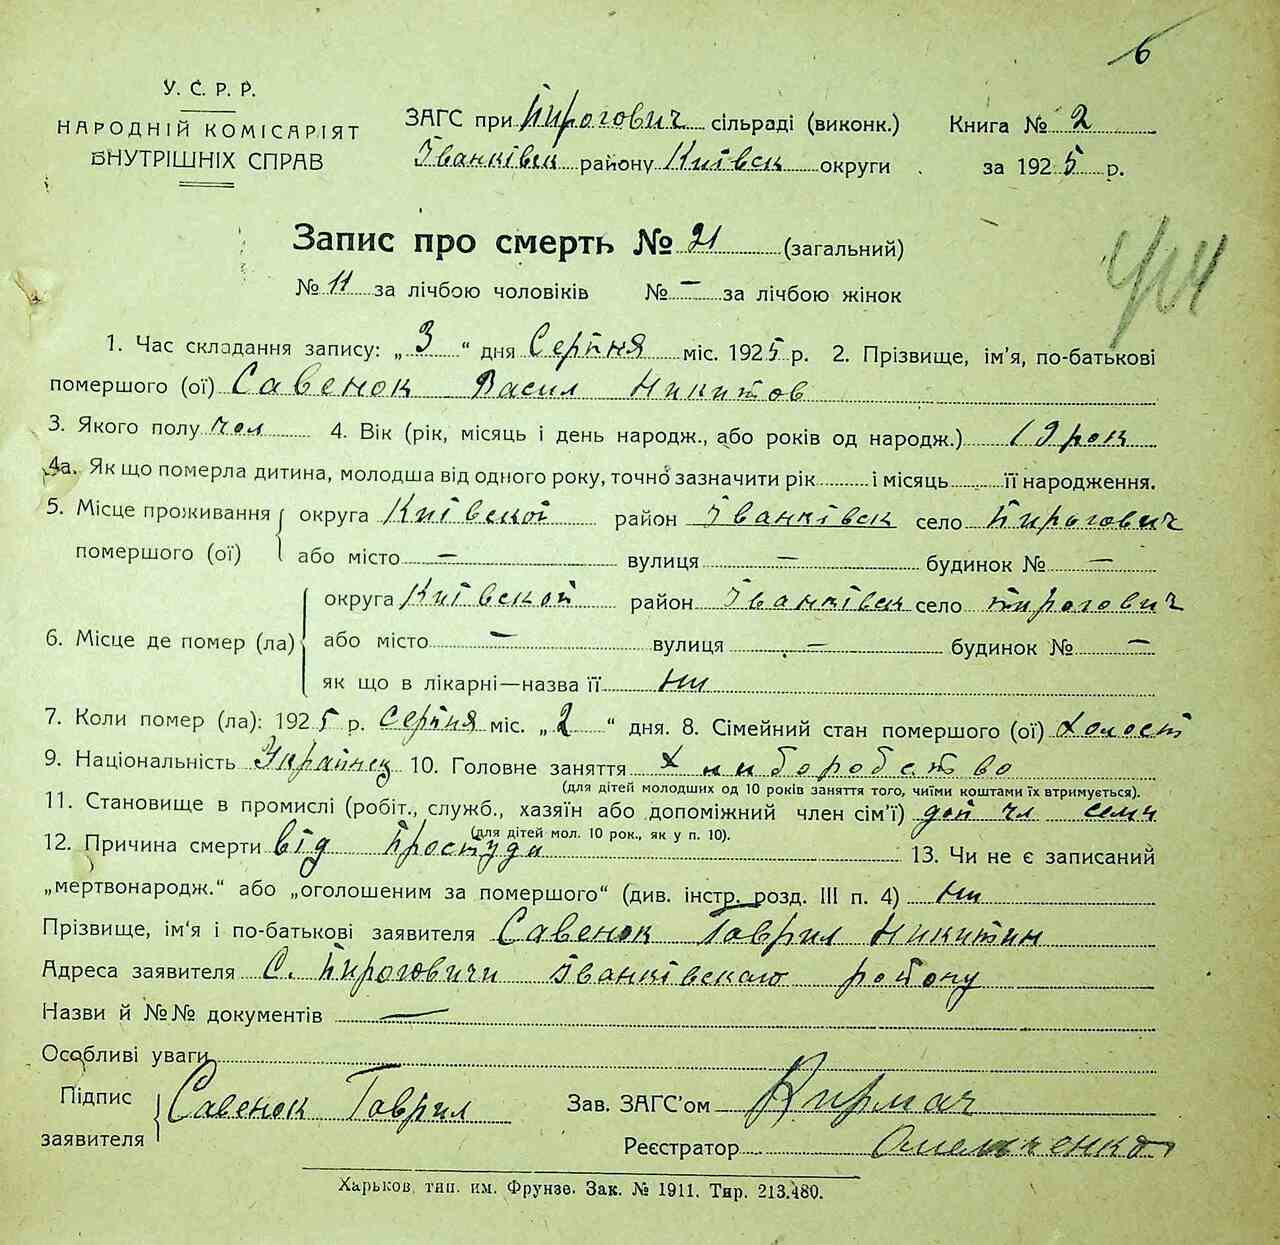 6
У. С. Р. Р.
НАРОДНІЙ КОМІСАРІЯТ
ВНУТРІШНІХ СПРАВ
ЗАГС при Пирогович сільраді (виконк.)
Іванківск району Київск округи
Книга № 2
за 1925 р.
Запис про смерть № 21 (загальний)
№ 11 за лічбою чоловіків № — за лічбою жінок
1. Час складання запису: „ 3 “ дня Серпня міс. 1925 р. 2. Прізвище, ім'я, по-батькові
помершого (ої) Савенок Васил Никитов
3. Якого полу чол 4. Вік (рік, місяць і день народж., або років од народж.) 19 рок
4а. Як що померла дитина, молодша від одного року, точно зазначити рік і місяць її народження.
5. Місце проживання помершого (ої) округа Київской район Іванківск село Пирогович
або місто — вулиця — будинок № —
6. Місце де помер (ла) округа Київской район Іванківск село Пирогович
або місто — вулиця — будинок № —
як що в лікарні—назва її ни
7. Коли помер (ла): 1925 р. Серпня міс. „ 2 “ дня. 8. Сімейний стан помершого (ої) холост
9. Національність Украйнец 10. Головне заняття хлиборобство
(для дітей молодших од 10 років заняття того, чиїми коштами їх втримується).
11. Становище в промислі (робіт., служб., хазяїн або допоміжний член сім'ї) доп чл семи
(для дітей мол. 10 рок., як у п. 10).
12. Причина смерти від простуди 13. Чи не є записаний
„мертвонародж.“ або „оголошеним за помершого“ (див. інстр. розд. III п. 4) ни
Прізвище, ім'я і по-батькові заявителя Савенок Гаврил Никитин
Адреса заявителя С. Пироговичи Іванківскаго району
Назви й №№ документів —
Особливі уваги
Підпис заявителя Савенок Гаврил
Зав. ЗАГС'ом Кирмач
Реєстратор Омельченко
Харьков, тип. им. Фрунзе. Зак. № 1911. Тир. 213.480.